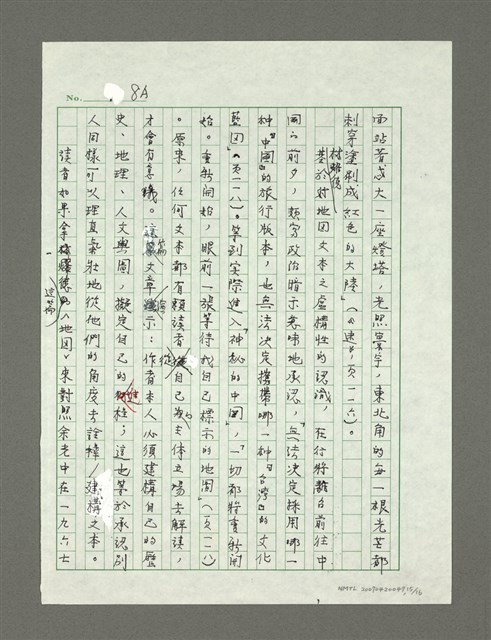 No. 8A
面站著感大一座燈塔，光照寰宇，東北角的每一根光芒都
刺穿塗刷成紅色的大陸」（《迷》，頁一一六）。
基於對地圖文本之虛構性的認識，在行將離台前往中
林燿德
國的前夕，頗富政治暗示意味地承認，「無法決定採用哪一
種『中國』的旅行版本，也無法決定攜帶哪一種『台灣』的文化
藍圖」（頁一一八）。等到實際進入「神秘的中國」，「一切都將重新開
始。重新開始，眼前一張等待我自己標示的地圖」（頁一一八）
。原來，任何文本都有賴讀者從自己為主體立場去解讀，
才會有意義。這篇文章暗示：作者本人必須建構自己的歷
史、地理、人文輿圖，擬定自己的座標；這也等於承認別
人同樣可以理直氣壯地從他們的角度去詮釋/建構文本。
讀者如果拿林燿德的〈地圖〉來對照余光中在一九六七
這篇
NMTL20090420049 15/16